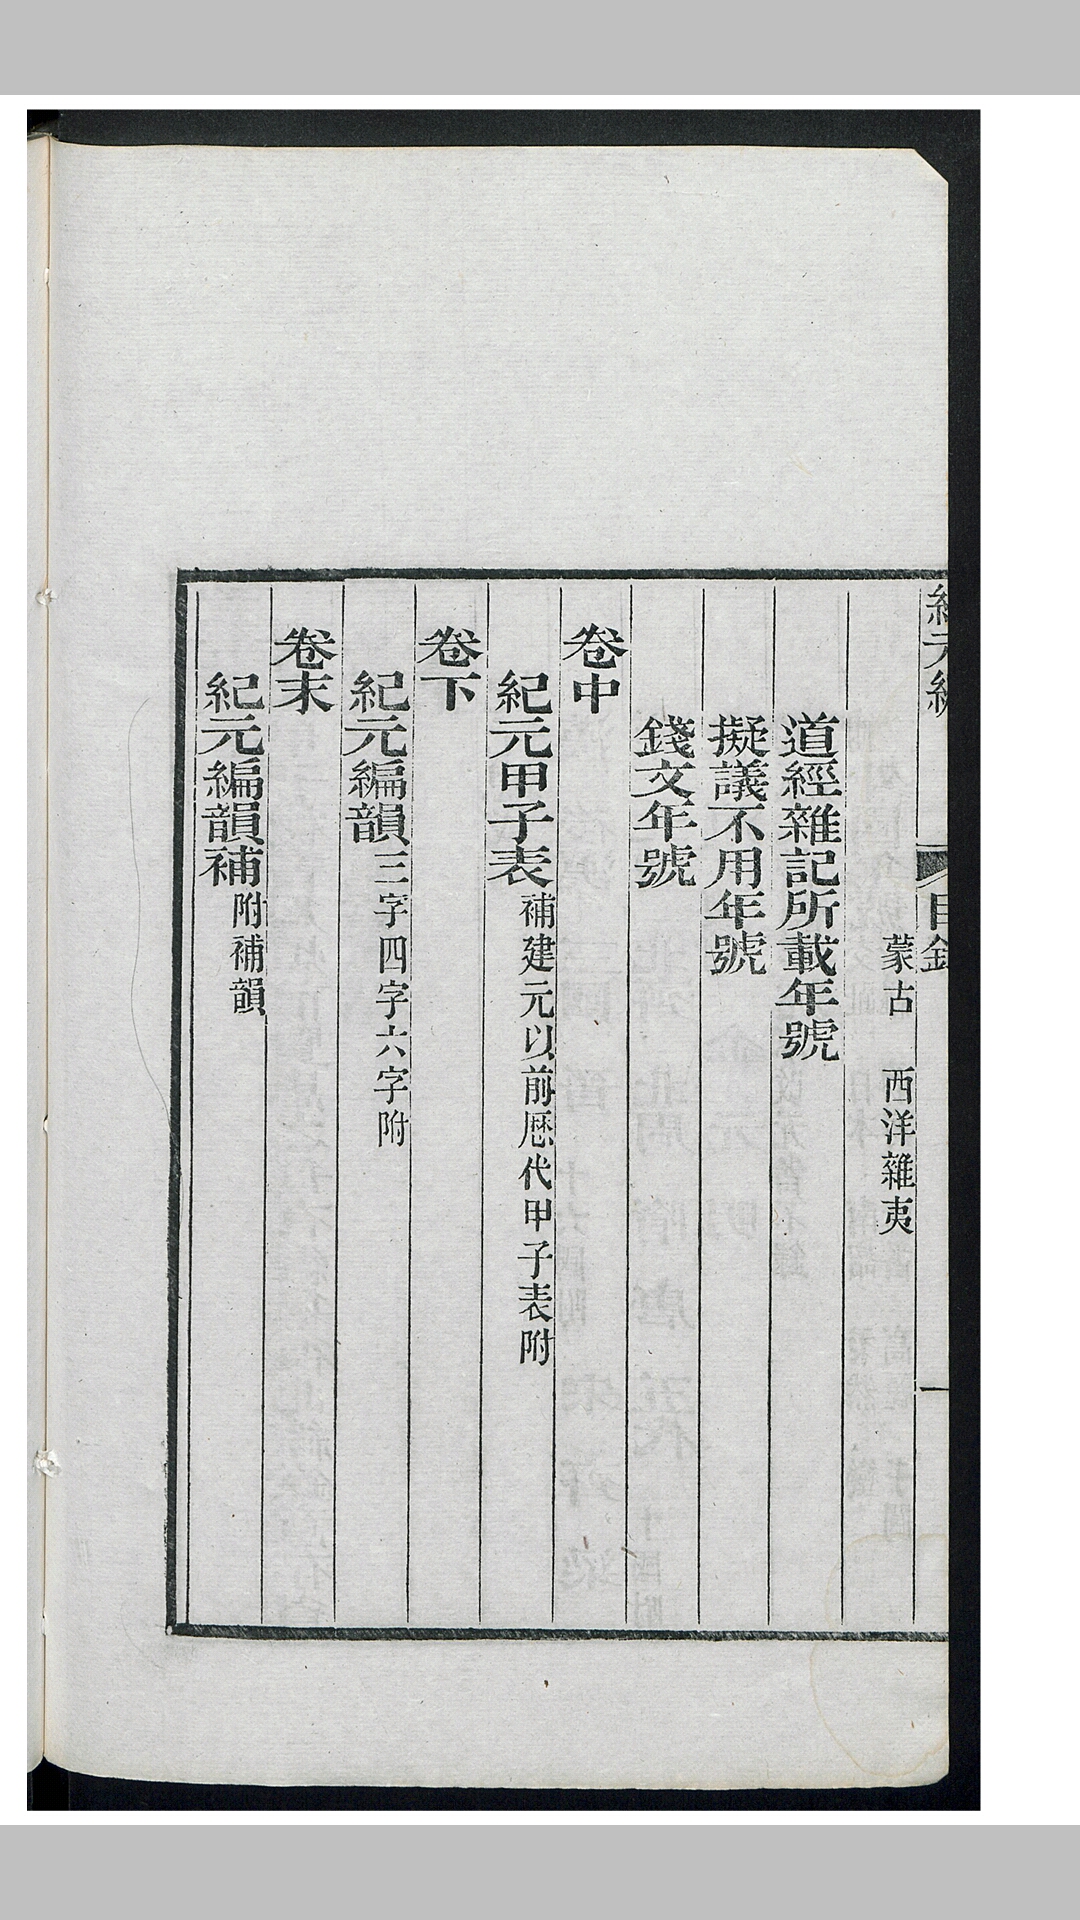 紀元編
目錄
一
蒙古　西洋雜夷
道經雜記所載年號
擬議不用年號
錢文年號
卷中
紀元甲子表補建元以前歷代甲子表附
卷下
紀元編韻三字四字六字附
卷末
紀元編韻補附補韻